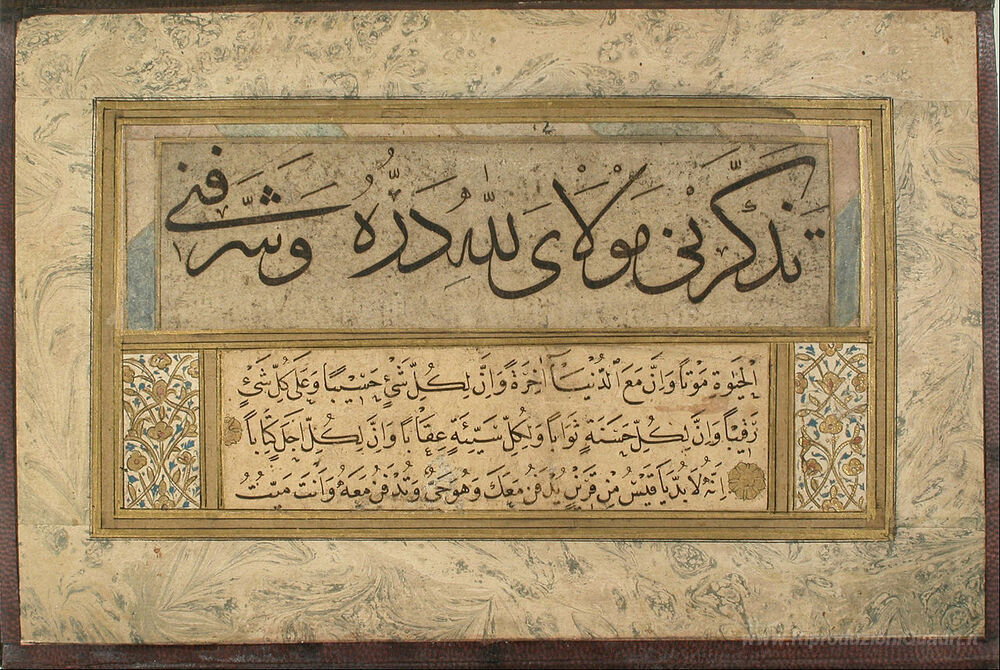 تذكّرني مولاى لله درّه وشرّفني
الحَيٰوةِ مَوْتاً وَاِنَّ مَعَ الدُّنْيَا آخِرَةً وَاِنَّ لِكُلِّ شَيْءٍ حَسِيْباً وَعَلٰى كُلِّ شَيْءٍ
رَقِيْباً وَاِنَّ لِكُلِّ حَسَنَةٍ ثَوَاباً وَلِكُلِّ سَيِّئَةٍ عِقَاباً وَاِنَّ لِكُلِّ اَجَلٍ كِتَاباً
اِنَّهُ لَابُدَّ يَا قَيْسُ مِنْ قَرِيْنٍ يُدْفَنُ مَعَكَ وَهُوَ حَيٌّ وَتُدْفَنُ مَعَهُ وَاَنْتَ مَيِّتٌ